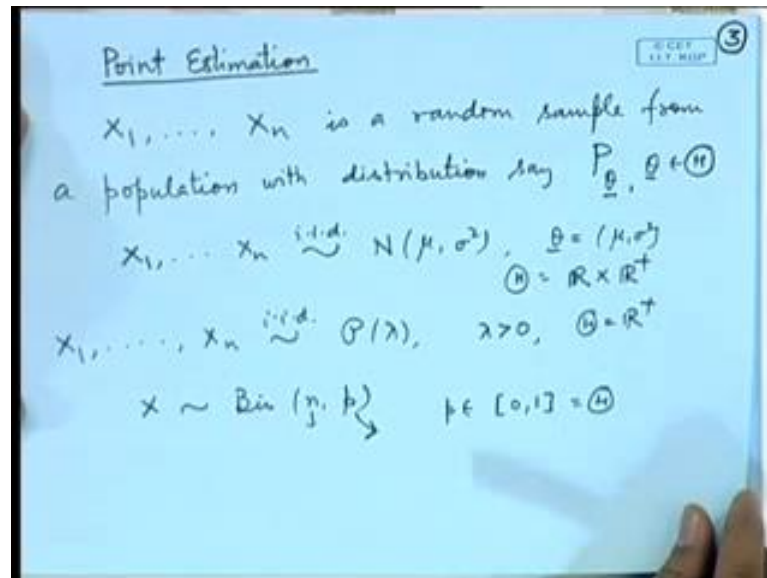 Point Estimation
© CET
I.I.T. KGP
3
X₁, ...., Xₙ is a random sample from
a population with distribution say P_θ, θ ∈ Ⓗ
X₁, ... Xₙ i.i.d. ~ N(μ, σ²), θ = (μ, σ²)
Ⓗ = ℝ × ℝ⁺
X₁, ....., Xₙ i.i.d. ~ P(λ), λ>0, Ⓗ = ℝ⁺
X ~ Bin (n, p) p ∈ [0,1] = Ⓗ